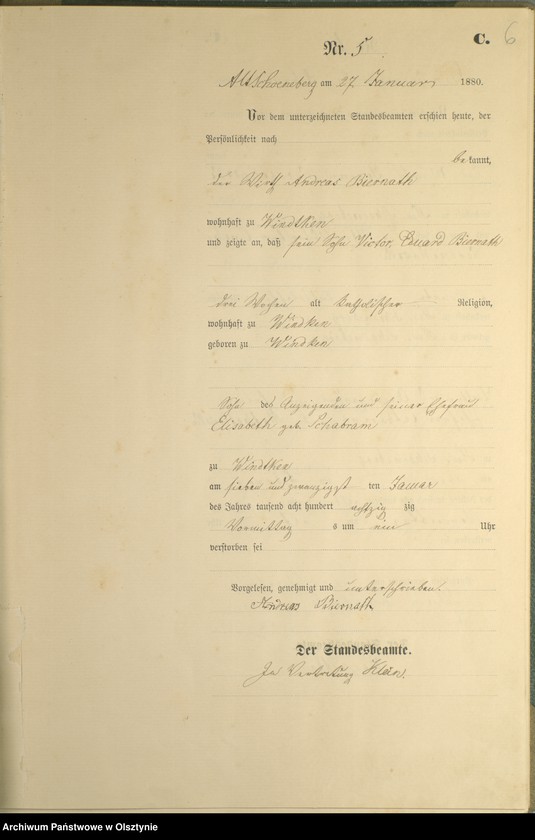 C. 6
Nr. 5.
Alt Schoeneberg am 27. Januar 1880.
Vor dem unterzeichneten Standesbeamten erschien heute, der
Persönlichkeit nach
bekannt,
der Wirth Andreas Biernath
wohnhaft zu Windtken
und zeigte an, daß sein Sohn Victor, Eduard Biernath
drei Wochen alt katholischer Religion,
wohnhaft zu Windken
geboren zu Windken
Sohn des Anzeigenden und seiner Ehefrau
Elisabeth geb. Schabram
zu Windtken
am sieben und zwanzigst ten Januar
des Jahres tausend acht hundert achtzig zig
Vormittag s um ein Uhr
verstorben sei
Vorgelesen, genehmigt und unterschrieben.
Andreas Biernath
Der Standesbeamte.
In Vertretung Klein.
Archiwum Państwowe w Olsztynie